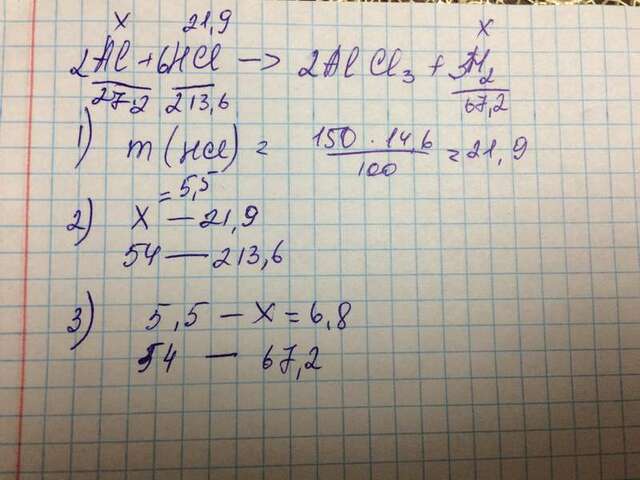 x 21,9 x
2Al + 6HCl → 2AlCl3 + 3H2
27·2 213,6 67,2
1) m(HCl) = 150 · 14,6 / 100 = 21,9
2) x — 21,9
= 5,5
54 — 213,6
3) 5,5 — x = 6,8
54 — 67,2